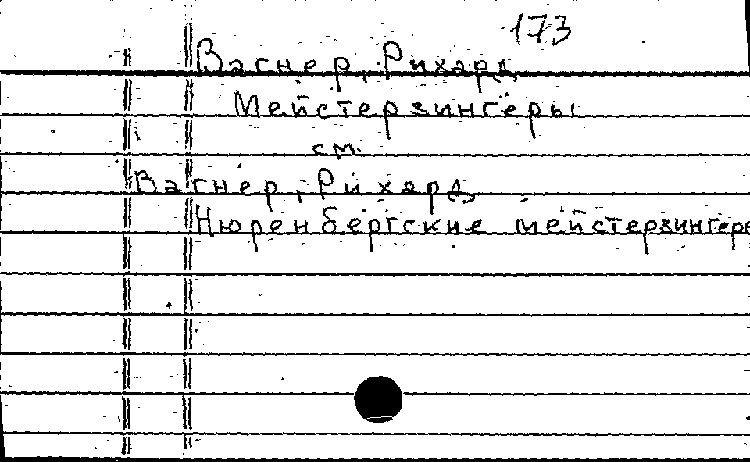 173
Вагнер, Рихард
Мейстерзингеры
см.
Вагнер, Рихард
Нюренбергские мейстерзингеры